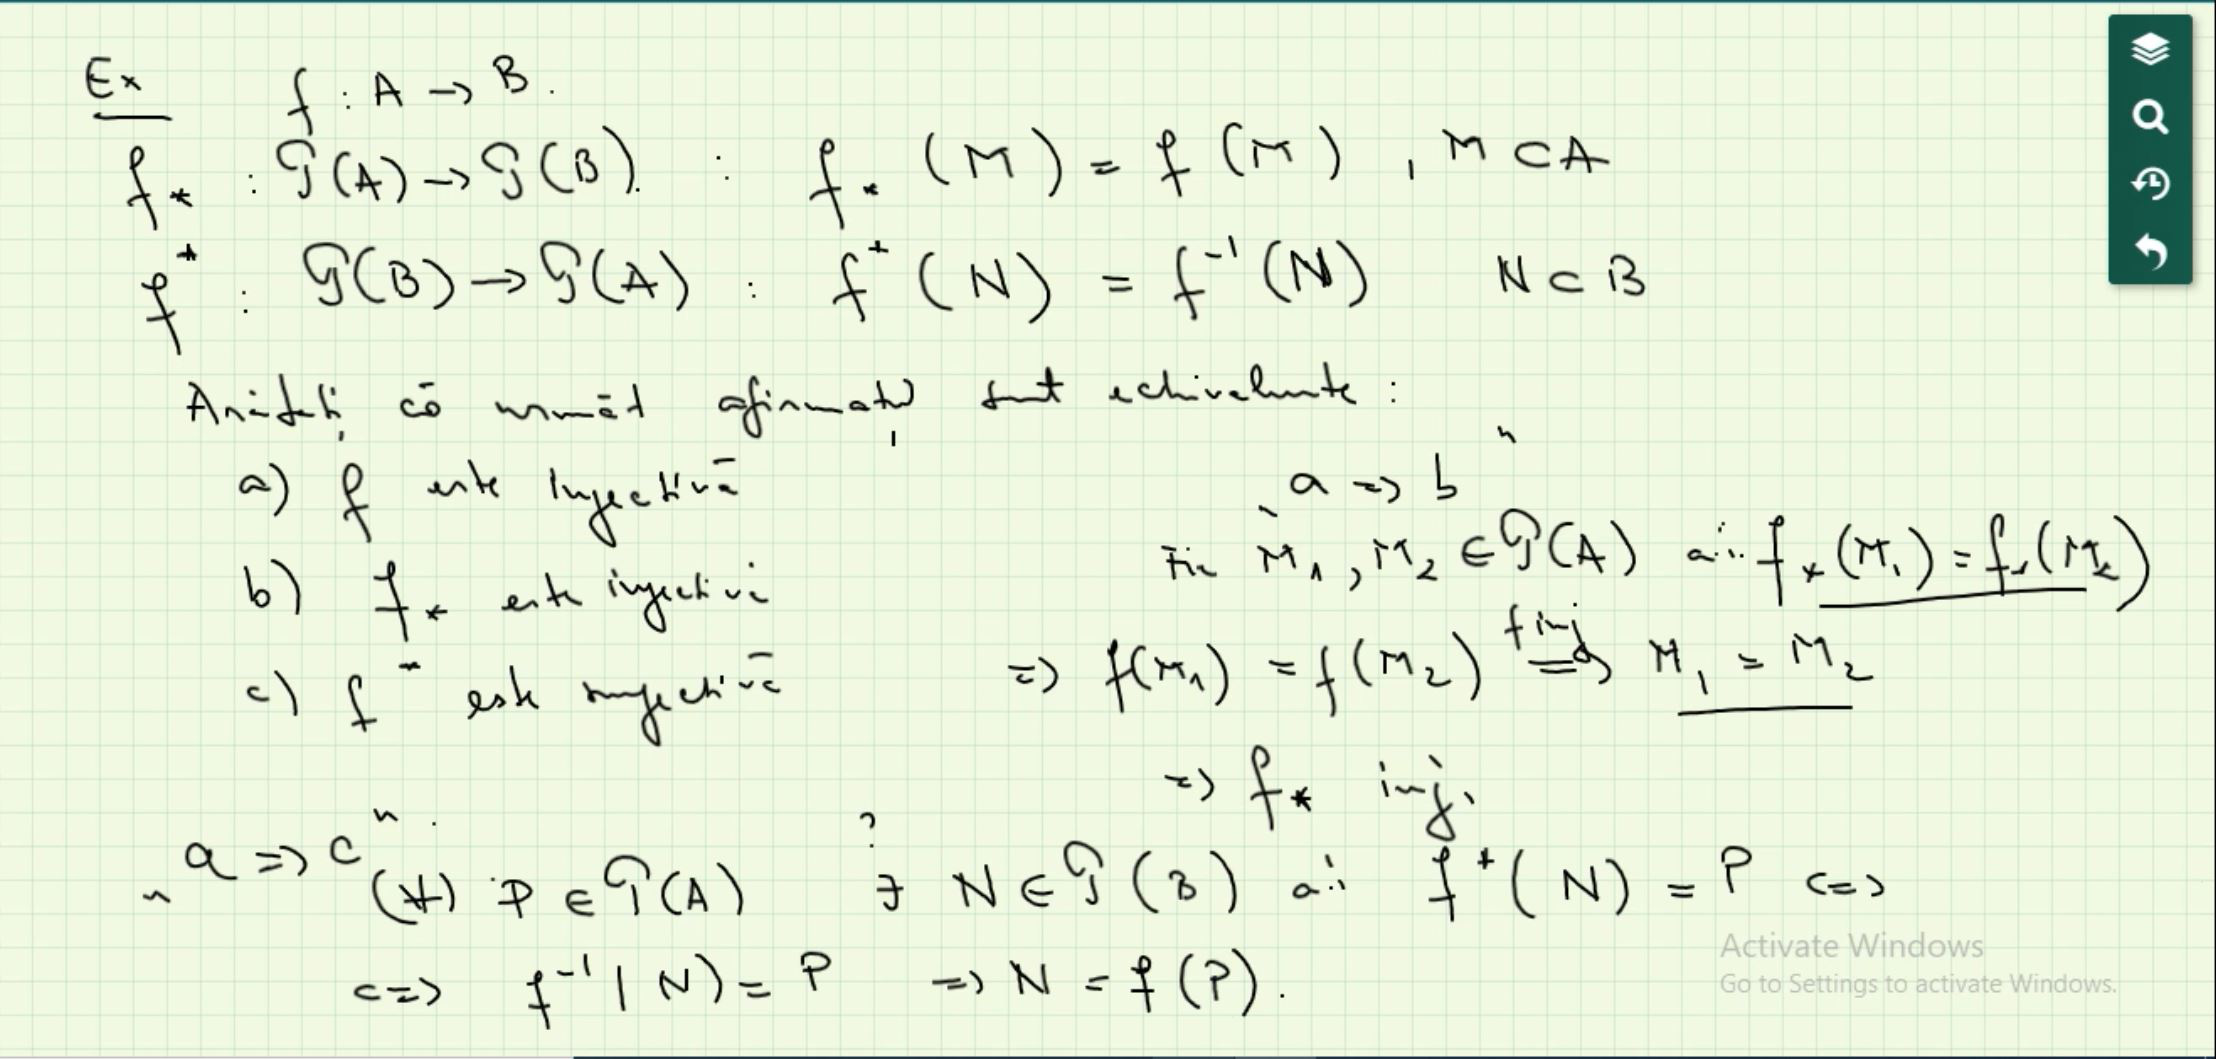 Ex f : A → B.
f⁎ : P(A) → P(B) : f⁎(M) = f(M), M ⊂ A
f* : P(B) → P(A) : f*(N) = f⁻¹(N) N ⊂ B
Arătați că următ afirmații sunt echivalente :
a) f este injectivă
b) f⁎ este injectivă
c) f* este surjectivă
"a => b"
Fie M₁, M₂ ∈ P(A) a.î. f⁎(M₁) = f⁎(M₂)
=> f(M₁) = f(M₂) =f inj=> M₁ = M₂
=> f⁎ inj.
"a => c" .
(∀) P ∈ P(A) ? ∃ N ∈ P(B) a.î f*(N) = P <=>
<=> f⁻¹(N) = P => N = f(P).
Activate Windows
Go to Settings to activate Windows.